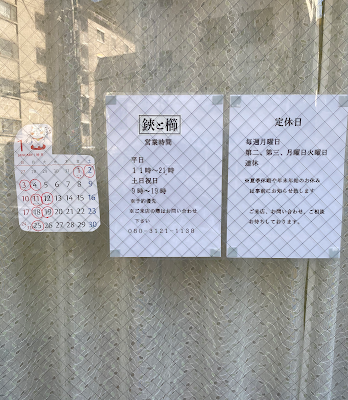 鋏と櫛
営業時間
平日
11時〜21時
土日祝日
9時〜19時
※予約優先
※ご来店の際はお問い合わせ
下さい
定休日
毎週月曜日
第二、第三、月曜日火曜日
連休
※夏季休暇や年末年始のお休み
は事前にお知らせ致します
ご来店、お問い合わせ、ご相談
お待ちしております。
1 2
3 4 5 6 7 8 9
10 11 12 13 14 15 16
17 18 19 20 21 22 23
25 26 27 28 29 30